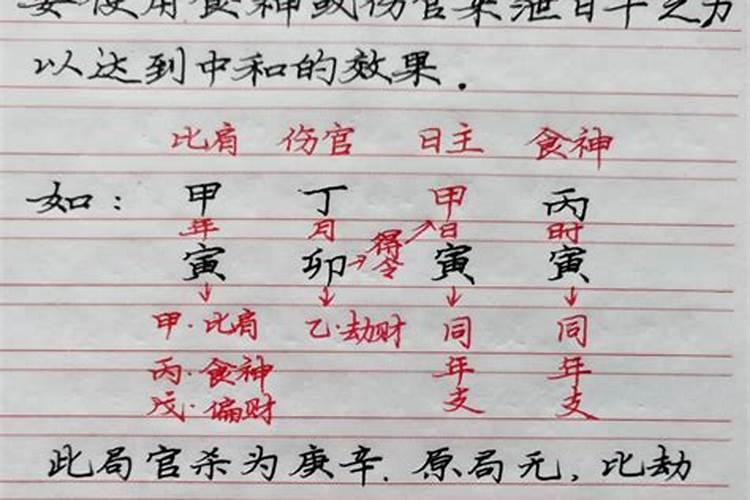 要使用食神或伤官来泄日干之力
以达到中和的效果.
比肩 伤官 日主 食神
如: 甲 丁 甲 丙
年 月 得 日 时
寅 卯 令 寅 寅
甲·比肩 乙·劫财 同 同
丙·食神 年 年
戊·偏财 支 支
此局官杀为庚辛.原局无,比劫